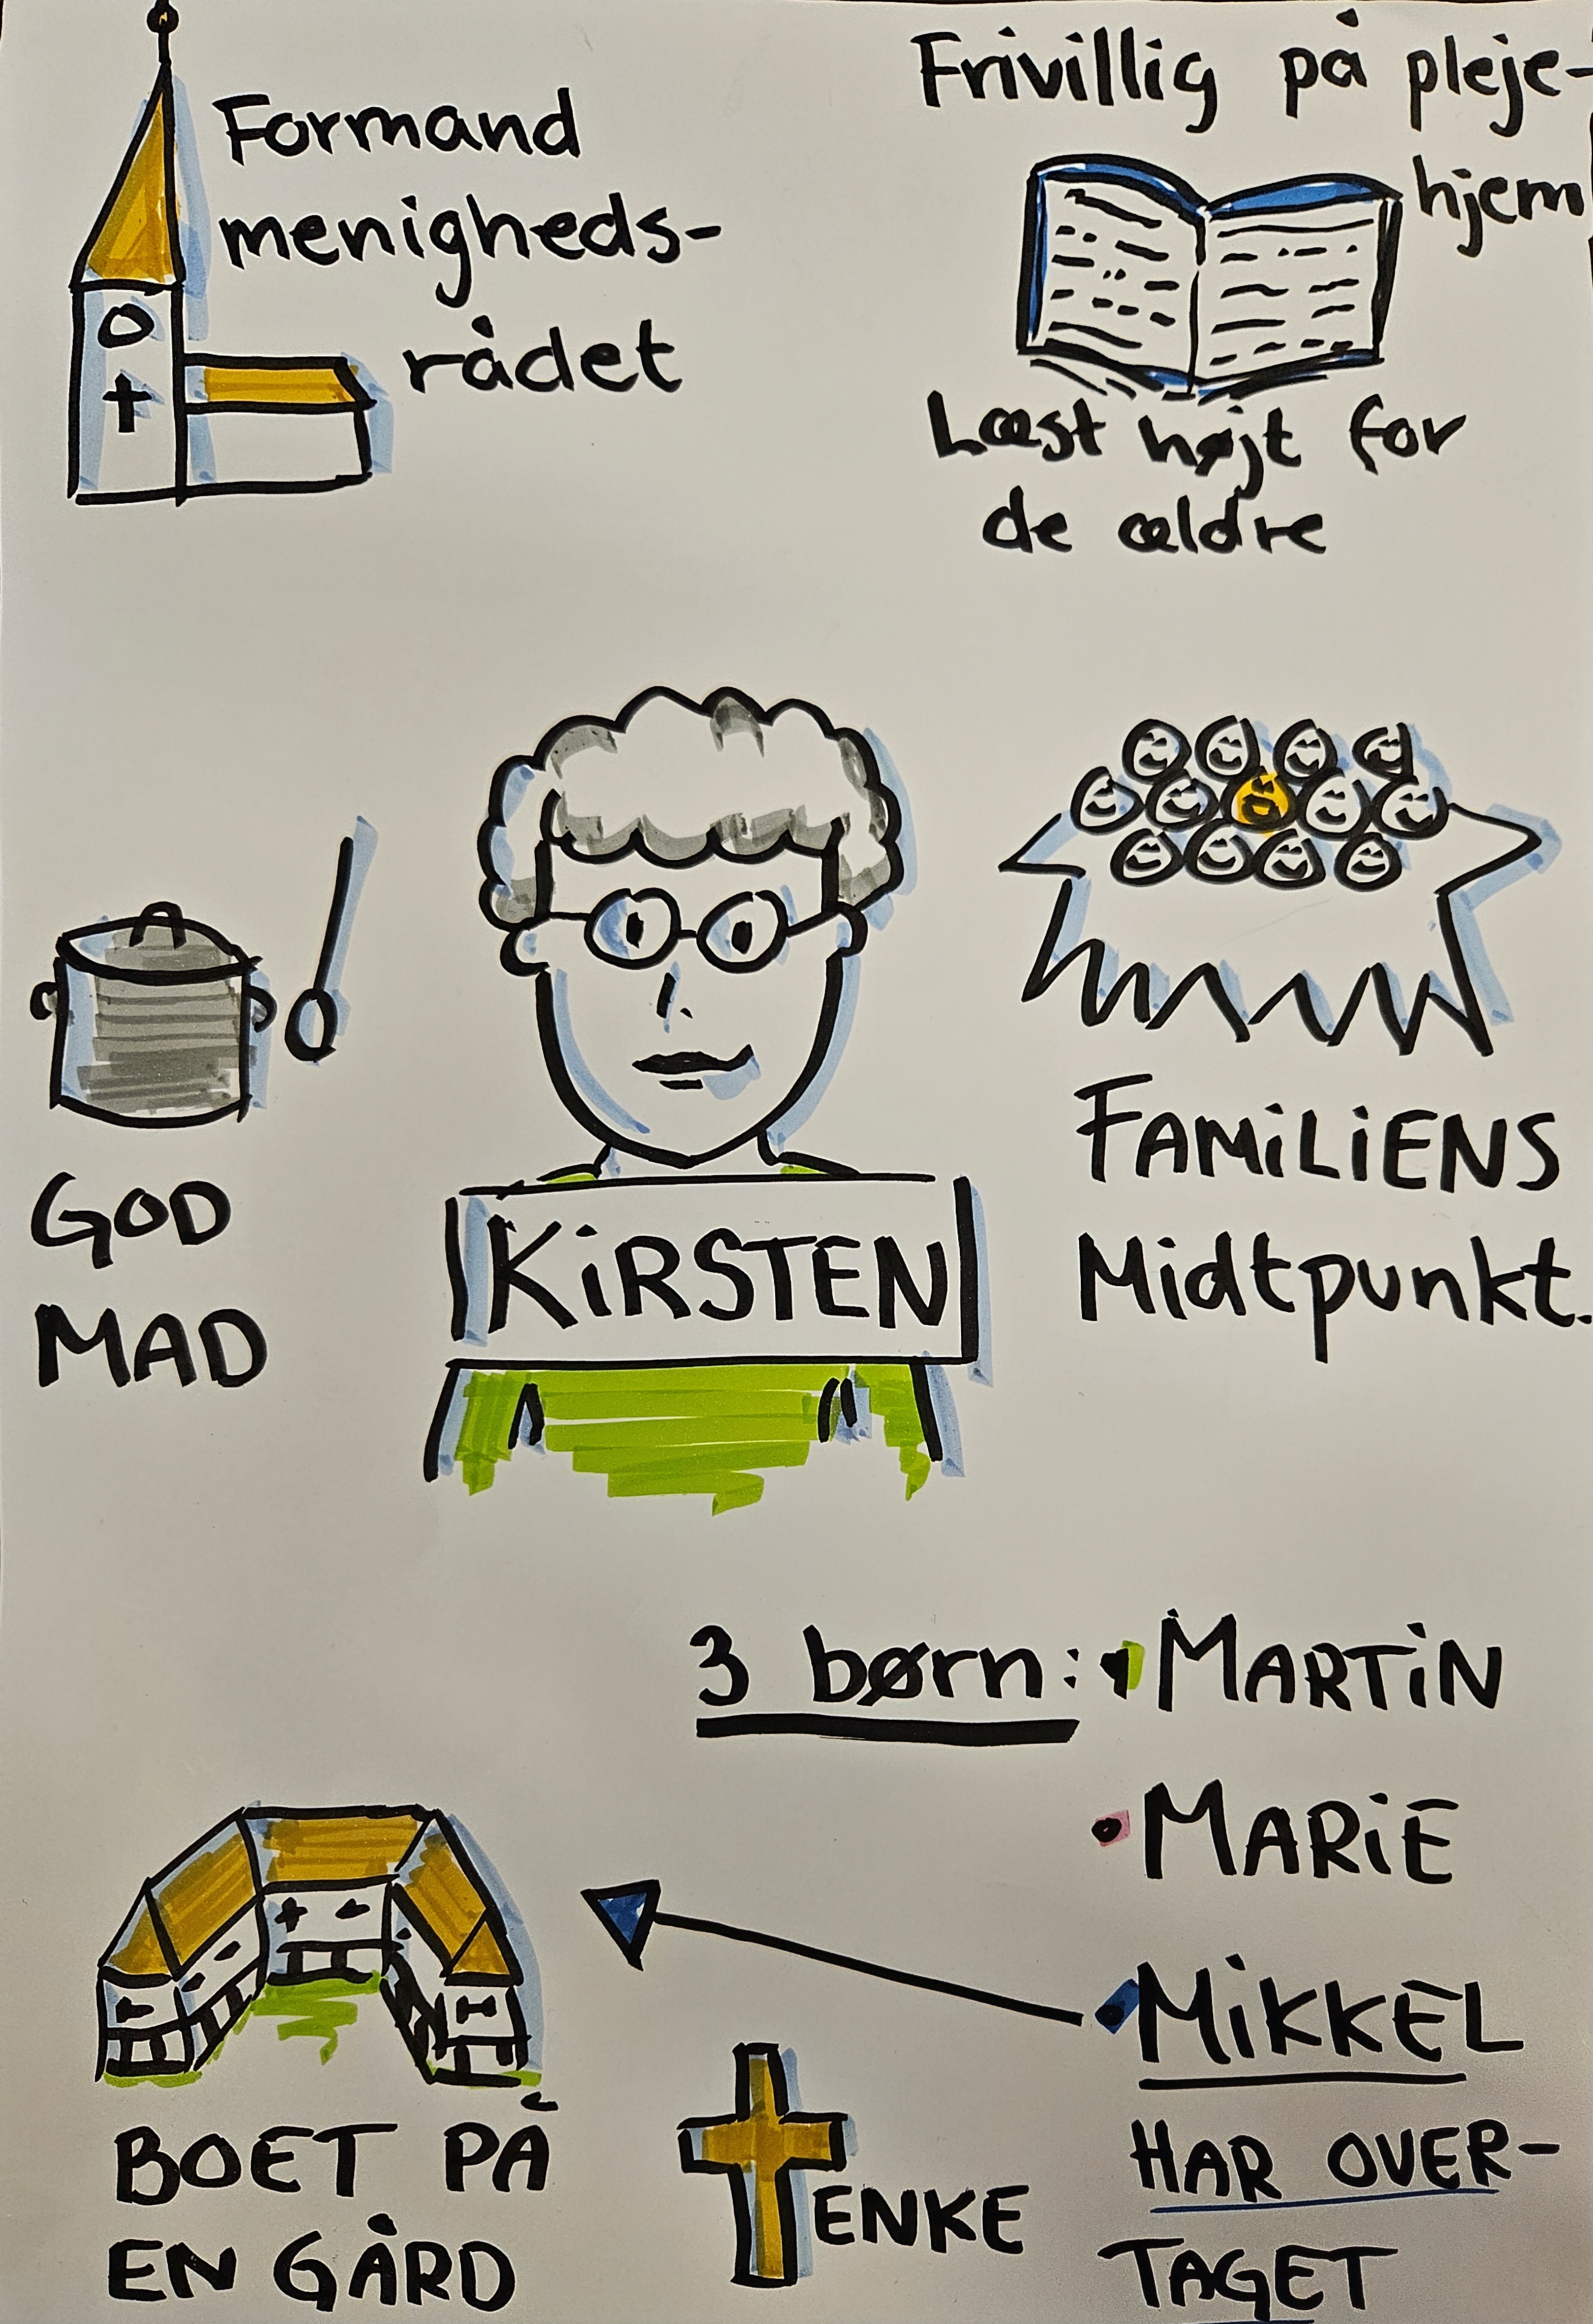 Formand
menigheds-
rådet
Frivillig på pleje-
hjem
Læst højt for
de ældre
GOD
MAD
KiRSTEN
FAMiLiENS
Midtpunkt.
3 børn: • MARTiN
• MARiE
• MiKKEL
HAR OVER-
TAGET
BOET PÅ
EN GÅRD
ENKE